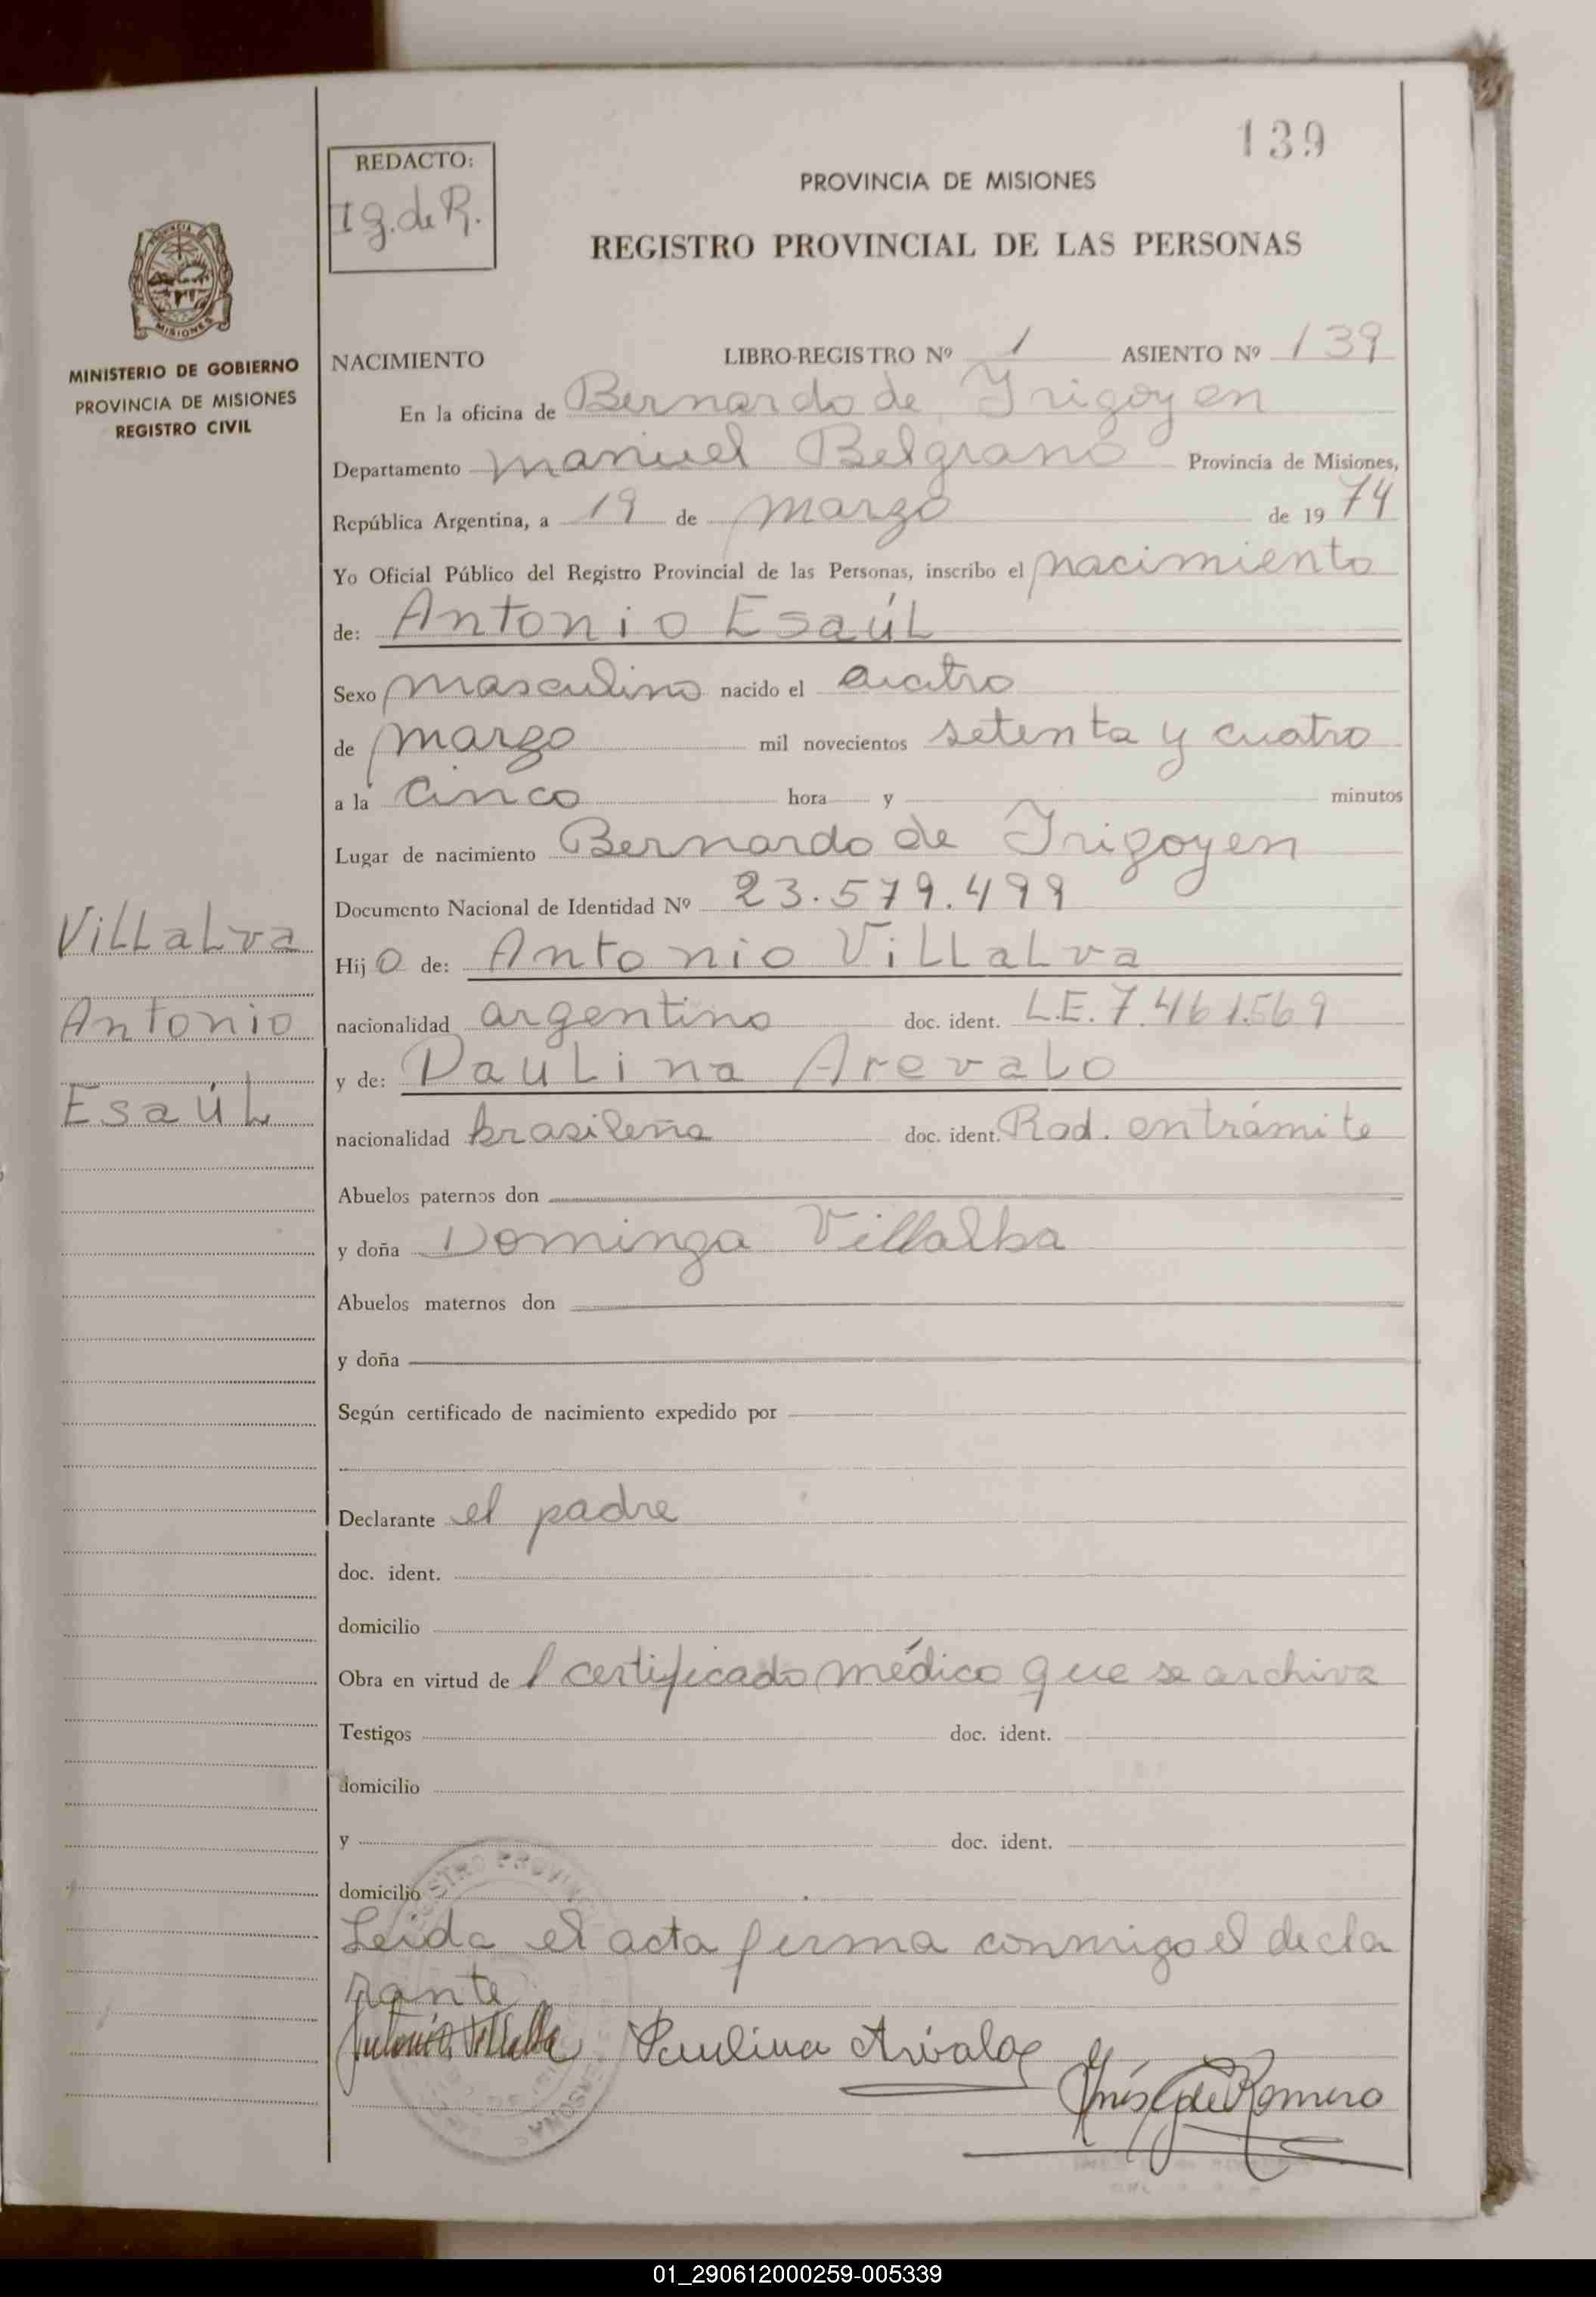 139
REDACTO:
I g. de R.
PROVINCIA DE MISIONES
REGISTRO PROVINCIAL DE LAS PERSONAS
MISIONES
MINISTERIO DE GOBIERNO
PROVINCIA DE MISIONES
REGISTRO CIVIL
NACIMIENTO LIBRO-REGISTRO Nº 1 ASIENTO Nº 139
En la oficina de Bernardo de Irigoyen
Departamento Manuel Belgrano Provincia de Misiones,
República Argentina, a 19 de marzo de 1974
Yo Oficial Público del Registro Provincial de las Personas, inscribo el nacimiento
de: Antonio Esaúl
Sexo masculino nacido el cuatro
de marzo mil novecientos setenta y cuatro
a la cinco hora y minutos
Lugar de nacimiento Bernardo de Irigoyen
Documento Nacional de Identidad Nº 23.579.499
Villalva
Antonio
Esaúl
Hijo de: Antonio Villalva
nacionalidad argentino doc. ident. L.E. 7.461.569
y de: Paulina Arevalo
nacionalidad brasileña doc. ident. Rad. en trámite
Abuelos paternos don
y doña Dominga Villalba
Abuelos maternos don
y doña
Según certificado de nacimiento expedido por
Declarante el padre
doc. ident.
domicilio
Obra en virtud de l certificado médico que se archiva
Testigos doc. ident.
domicilio
y doc. ident.
domicilio
Leida el acta firma conmigo el decla
rante
Antonio Villalba Paulina Arivalo
Inés G de Romero
01_290612000259-005339